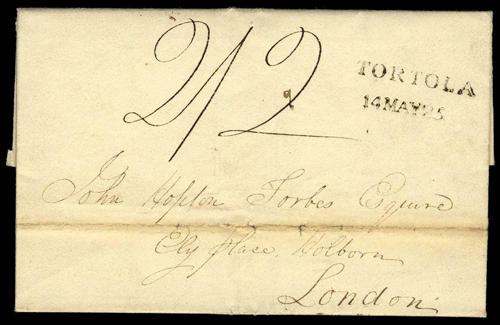 2/2
TORTOLA
14MAY25
John Hopton Forbes Esquire
Ely Place, Holborn
London